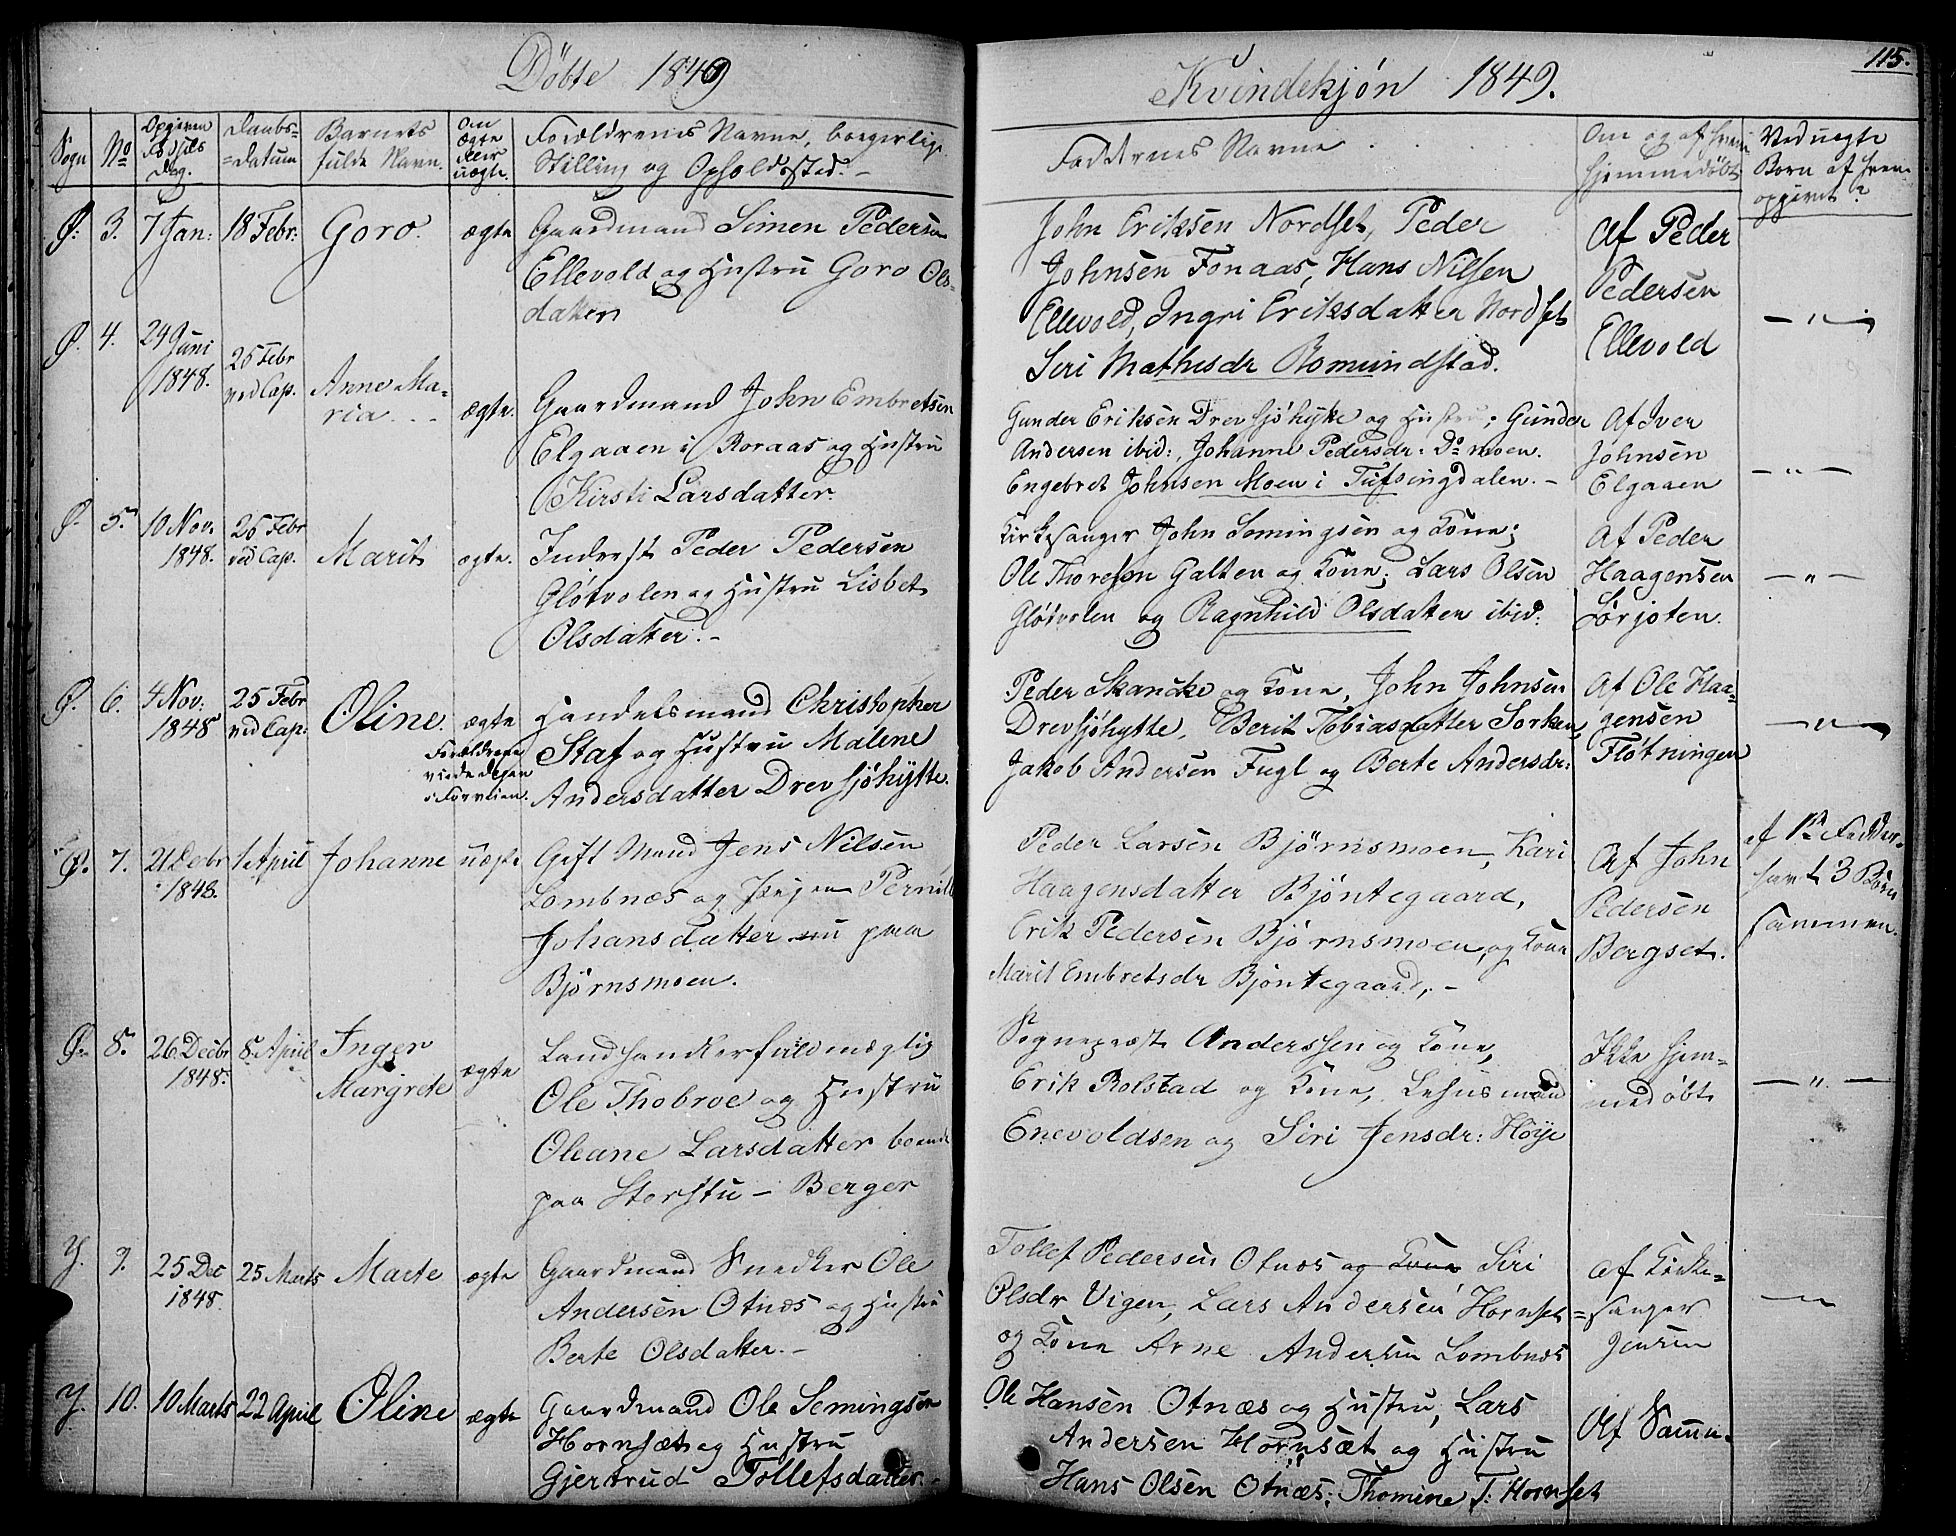 Döbte 1849
Sogn
No
Opgiven Födsels Dag.
Daabs=datum
Barnets fulde Navn.
Om ægte eller uægte.
Forældrenes Navne, borgerlige
Stilling og Opholdssted. –
Ø: 3. 7 Jan: 18 Febr: Goro. ægte Gaardmand Simen Pedersen
Ellevold og Hustru Goro Ols-
datter
Ø. 4. 24 Juni 1848. 25 Febr ved Cap. Anne Ma-
ria. ægte. Gaardmand John Embretsen
Elgaaen i Roraas og Hustru
Kirsti Larsdatter.
Ø. 5. 10 Nov. 1848. 25 Febr ved Cap. Marit ægte. Inderst Peder Pedersen
Glötvolen og Hustru Lisbet
Olsdatter. –
Ø. 6. 4 Nov: 1848 25 Febr ved Cap: Oline. ægte Handelsmand Christopher
Forældrene
Staf og Hustru Malene
Andersdatter Drevsjöhytte.
Ø. 7. 21 Decbr 1848. 1 April Johanne uægte Gift Mand Jens Nilsen
Lombnæs og Pigen Pernille
Johansdatter nu paa
Björnsmoen.
Ø. 8. 26 Decbr 1848. 8. April Inger
Margrete ægte Landhandlerfuldmægtig
Ole Thobroe og Hustru
Oleane Larsdatter boende
paa Storstu – Berger
Y. 9. 25 Dec 1848 25 Marts Marte ægte Gaardmand Snedker Ole
Andersen Otnæs og Hustru
Berte Olsdatter. –
Y. 10. 10 Marts 22 April Oline ægte Gaardmand Ole Semingsen
Hornsæt og Hustru
Gjertrud Tollefsdatter. –
Kvindekjön 1849.
115.
Faddernes Navne
Om og af hvem
hjemmedöbt
Ved uægte
Börn af hvem
opgivet?
John Eriksen Nordset, Peder
Johnsen Fonaas, Hans Nilsen
Ellevold, Ingri Eriksdatter Nordset
Siri Mathisdr Romundstad.
Af Peder
Pedersen
Ellevold
– " –
Gunder Eriksen Drevsjöhytte og Hustru; Gunder
Andersen ibid:, Johanne Pedersdr: Do moen.
Engebret Johnsen Moen i Tufsingdalen. –
Af Iver
Johnsen
Elgaaen
– " –
Kirkesanger John Semingsen og Kone;
Ole Thoresen Galten og Kone; Lars Olsen
Glötvolen og Ragnhild Olsdatter ibid:
Af Peder
Haagensen
Sörjoten.
– " –
Peder Skancke og Kone, John Johnsen
Drevsjöhytte, Berit Tobiasdatter Sorken,
Jakob Andersen Fugl og Berte Andersdr:
Af Ole Haa-
gensen
Flötningen
– " –
Peder Larsen Björnsmoen, Kari
Haagensdatter Björtegaard,
Erik Pedersen Björnsmoen, og Kone
Marit Embretsdr Bjöntegaard, –
Af John
Pedersen
Bergset.
af 1ste Fadder.
havt 3 Börn
sammen.
Sognepræst Anderssen og Kone,
Erik Rolstad og Kone, Lehnsmand
Enevoldsen og Siri Jensdr: Höije
Ikke hjem-
medöbt
– " –
Tollef Pedersen Otnæs og Kone Siri
Olsdr Vigen, Lars Andersen Hornset
og Kone Arne Andersen Lombnæs
af Kirke=
=sanger
Jensen
–
Ole Hansen Otnæs og Hustru, Lars
Andersen Hornsæt og Hustru
Hans Olsen Otnæs; Thomine T: Hornset
Af Samm.